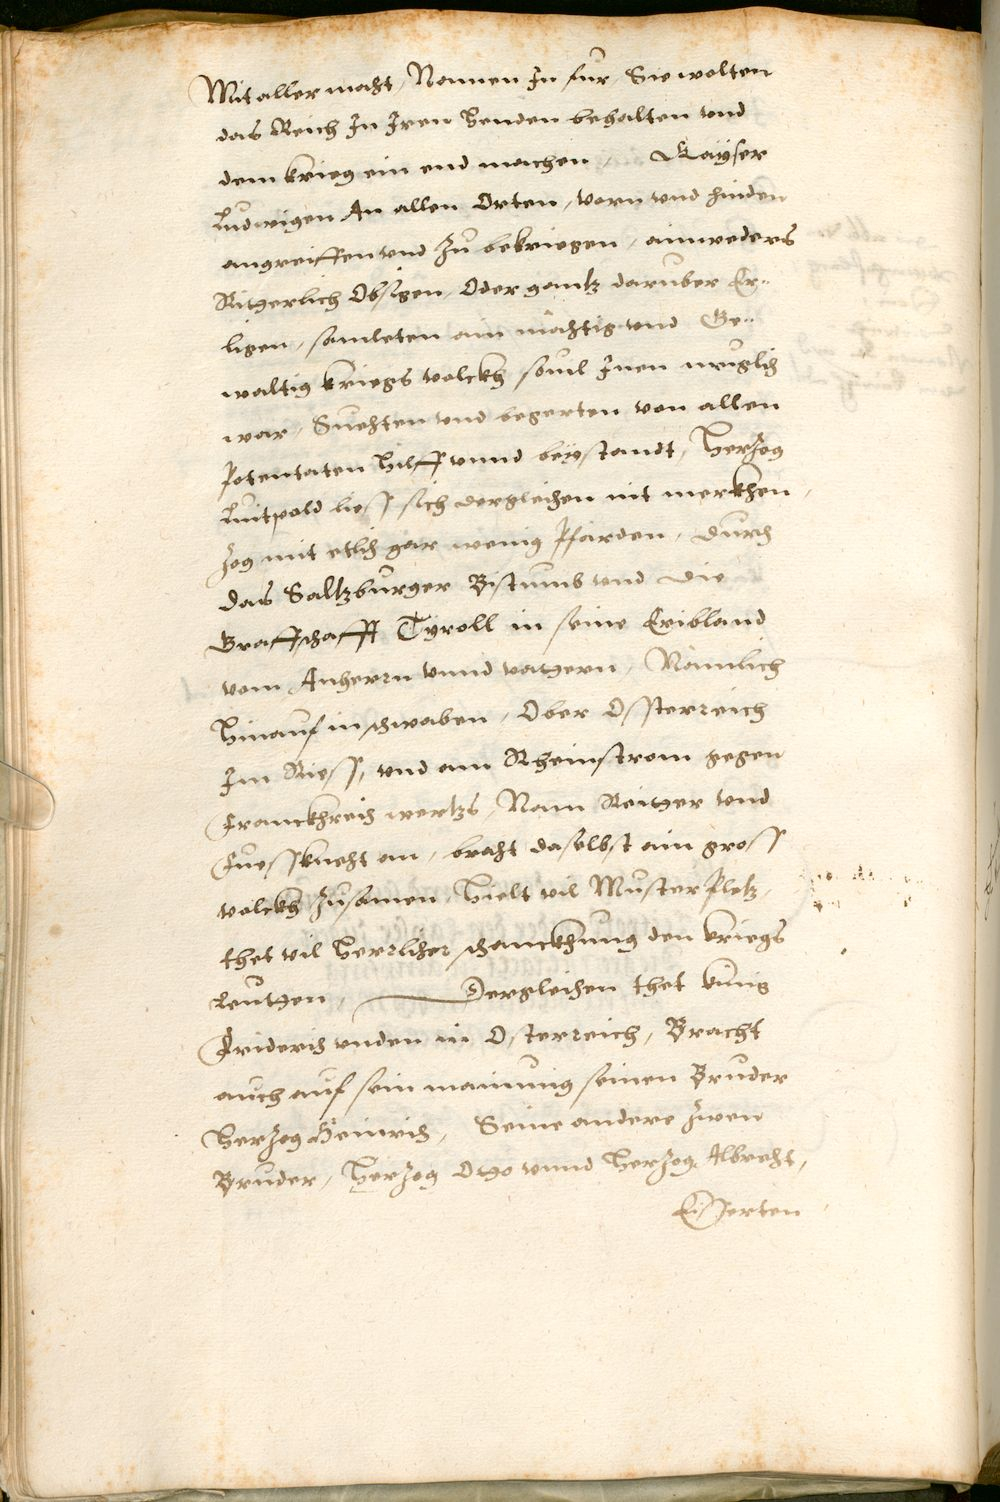 Mit aller macht, Namen In fur Sie wolten
das Reich In Iren Henden behalten vnd
dem krieg ein end machen, Kayser
Ludwigen An allen Orten, vorn vnd hinden
angreiffen vnd Zu bekriegen, ainweders
Ritterlich Obsigen, Oder gantz daruber Er-
ligen, samleten ain mächtig vnd Ge-
waltig kriegs volckh souil Inen muglich
war, Suechten vnd begerten von allen
Potentaten Hilff vnnd beystandt, Herzog
Luitpold liess sich dergleichen nit merkhen,
Zog mit etlich gar wenig Pfärden, durch
das Saltzburger Bistumb vnd die
Graffschafft Tyroll in seine Eribland
vom Anherrn vnnd vattern, Nämlich
Hinauf in schwaben, Ober Osterreich
Im Riess, vnd am Rheinstrom gegen
Franckhreich wertzs, Nam Reitter vnd
Fuesskneht an, bracht daselbst ain gross
volckh Zusamen, Hielt vil Muster Pletz,
thet vil Herrlicher schanckhung den kriegs
Leutten, Dergleichen thet künig
Friderich vnden in Osterreich, Bracht
auch auf sein mainung seinen Bruder
Herzog Heinrich, Seine andere zwen
Bruder, Herzog Otto vnnd Herzog Albrecht,